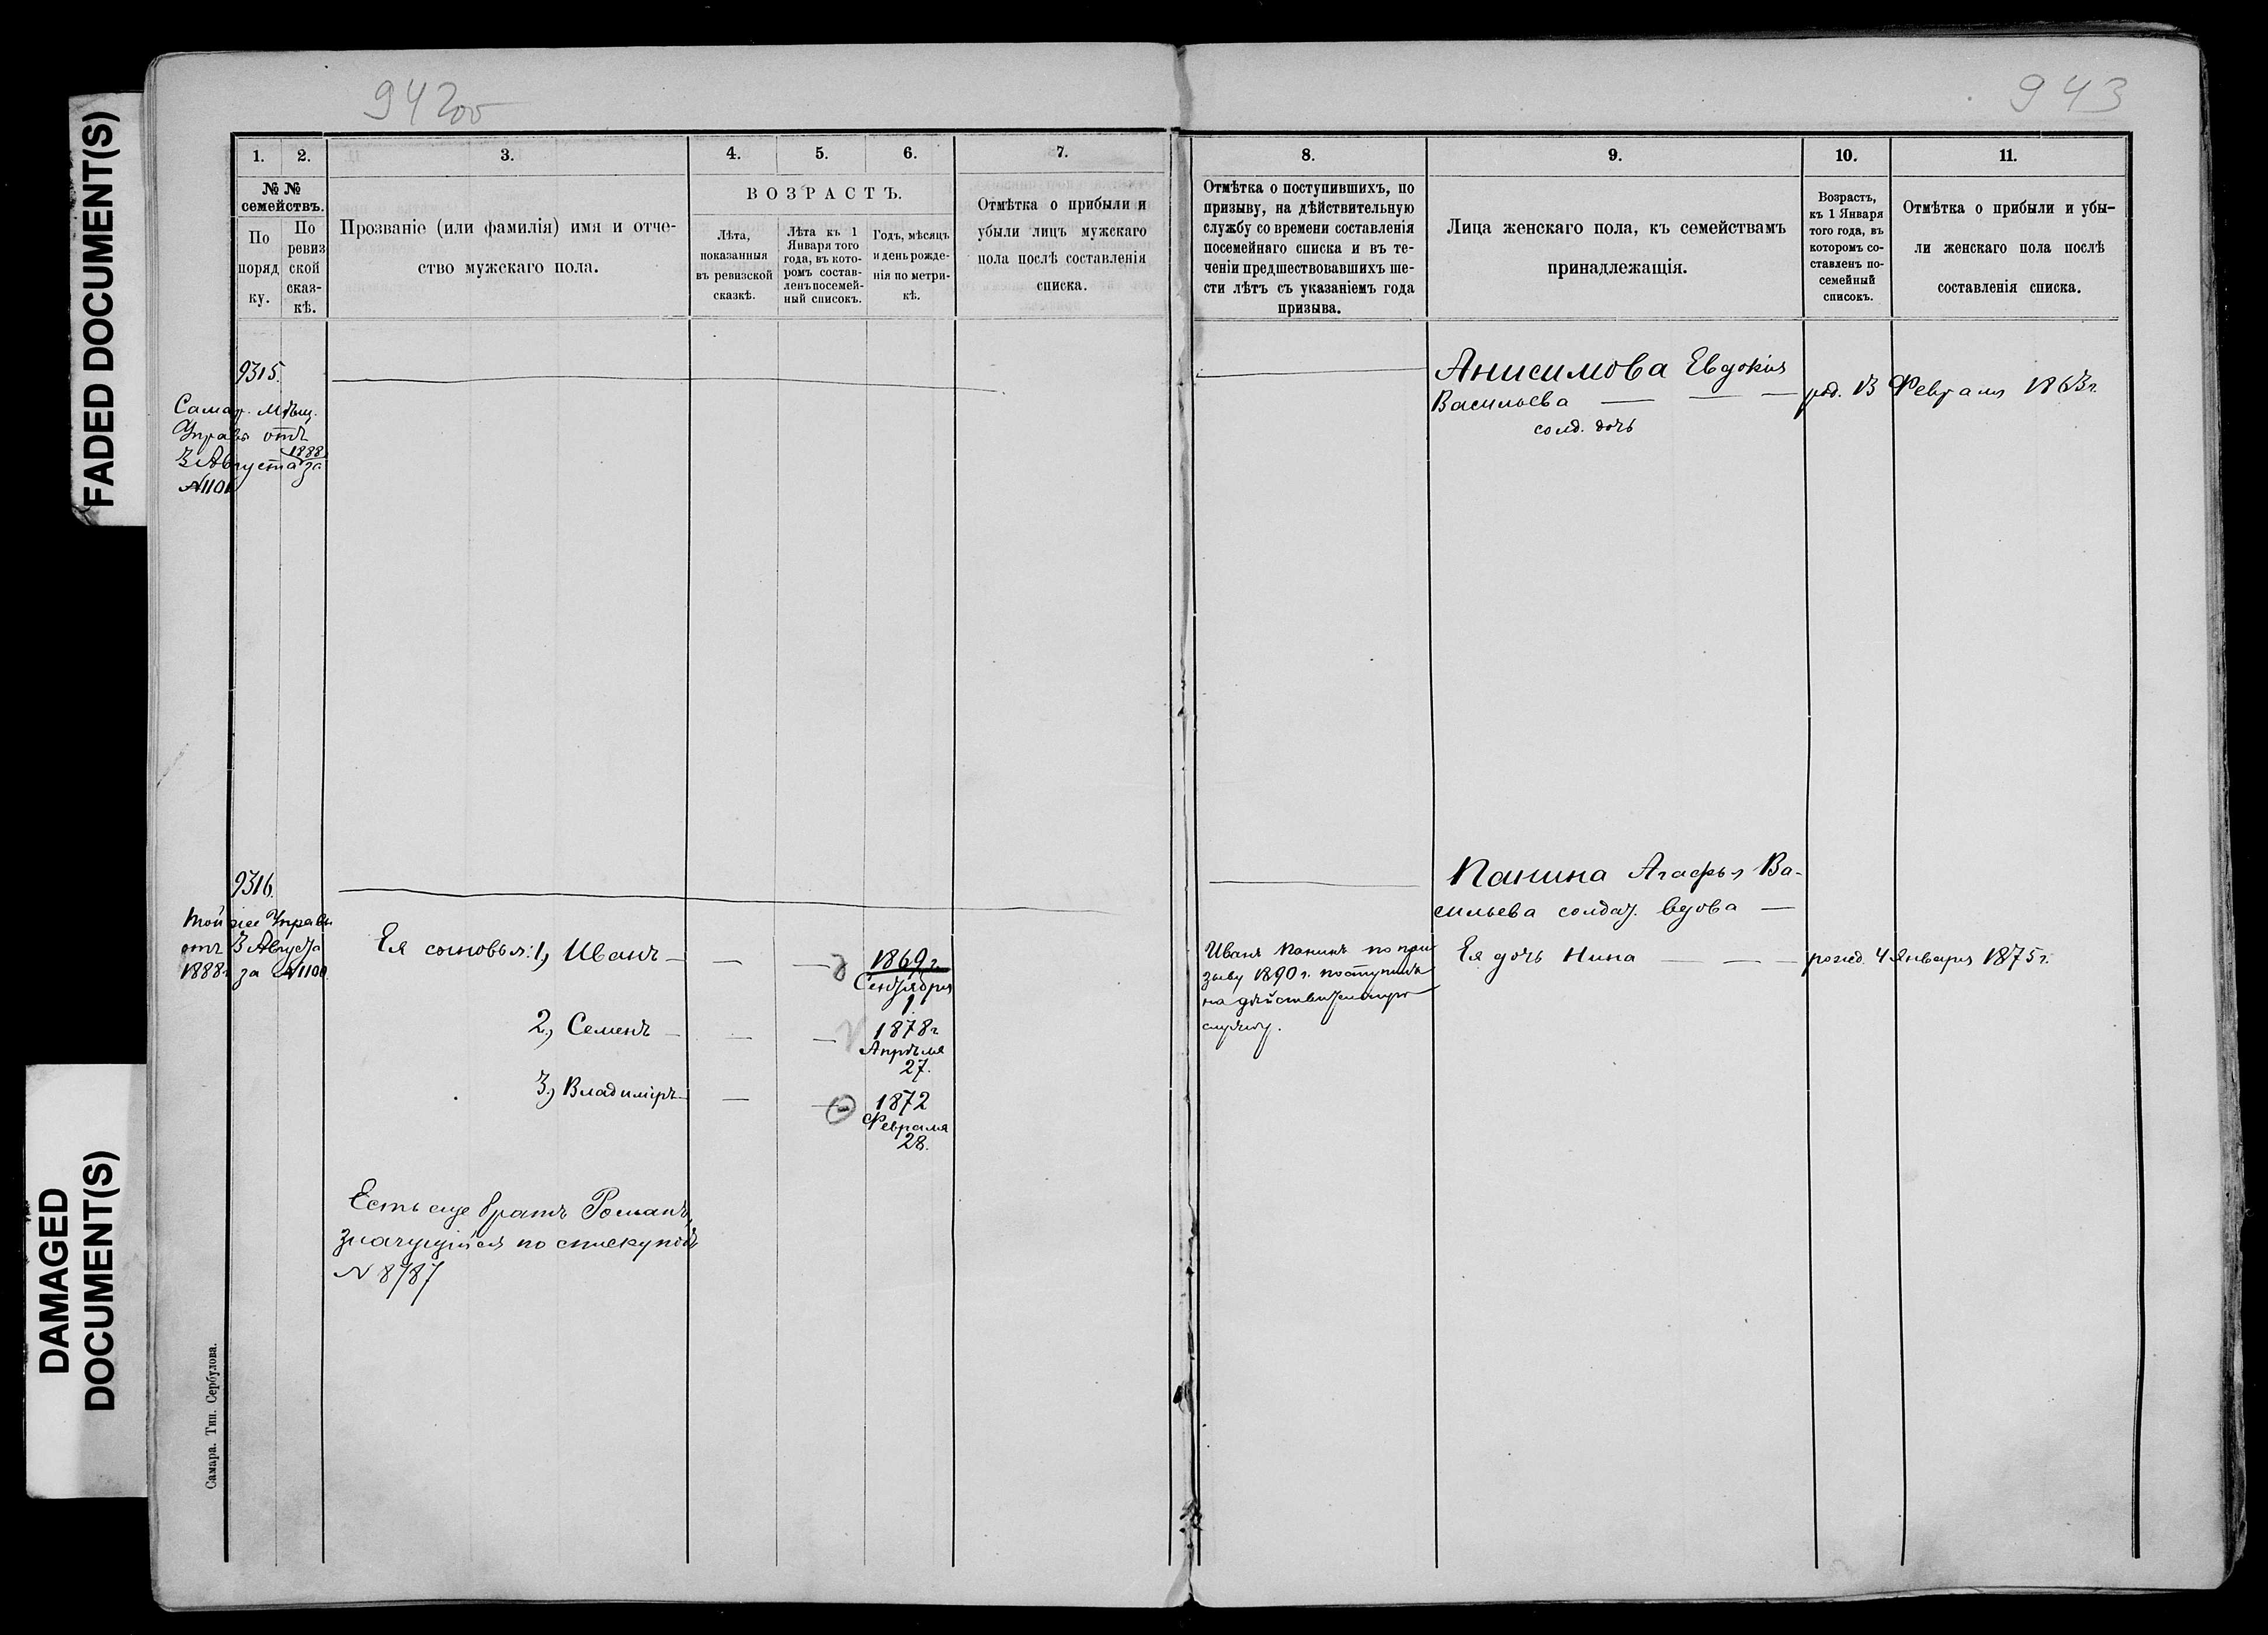 FADED DOCUMENT(S)
DAMAGED
DOCUMENT(S)
942об
943
1. 2. 3. 4. 5. 6. 7.
№ №
семействъ.
По
поряд
ку.
По
ревиз
ской
сказ-
кѣ.
Прозваніе (или фамилія) имя и отче-
ство мужскаго пола.
ВОЗРАСТЪ.
Лѣта,
показанныя
въ ревизской
сказкѣ.
Лѣта къ 1
Января того
года, въ кото-
ромъ состав-
ленъ посемей-
ный списокъ.
Годъ, мѣсяцъ
и день рожде-
нія по метри-
кѣ.
Отмѣтка о прибыли и
убыли лицъ мужскаго
пола послѣ составленія
списка.
8. 9. 10. 11.
Отмѣтка о поступившихъ, по
призыву, на дѣйствительную
службу со времени составленія
посемейнаго списка и въ те-
ченіи предшествовавшихъ ше-
сти лѣтъ съ указаніемъ года
призыва.
Лица женскаго пола, къ семействамъ
принадлежащія.
Возрастъ,
къ 1 Января
того года, въ
которомъ со-
ставленъ по-
семейный
списокъ.
Отмѣтка о прибыли и убы-
ли женскаго пола послѣ
составленія списка.
9315.
Самар. Мѣщ.
Управы отъ
3 Августа 1888 за
№1101
Анисимова Евдокія
Васильева род. 13 Февраля 1863г.
солд. дочь
9316.
Той же Управы
отъ 3 Августа
1888г за №1100.
Панина Агафья Ва-
сильева солдат. вдова
Ея сыновья: 1, Иванъ
1869г
Сентября
1.
2, Семенъ
1878г
Апрѣля
27.
3, Владиміръ
1872
Февраля
28.
Иванъ Панинъ по при-
зыву 1890г. поступилъ
на дѣйствительную
службу.
Ея дочь Нина рожд. 4 Января 1875г.
Есть еще братъ Романъ,
значущійся по списку подъ
№ 8787
Самара. Тип. Сербулова.